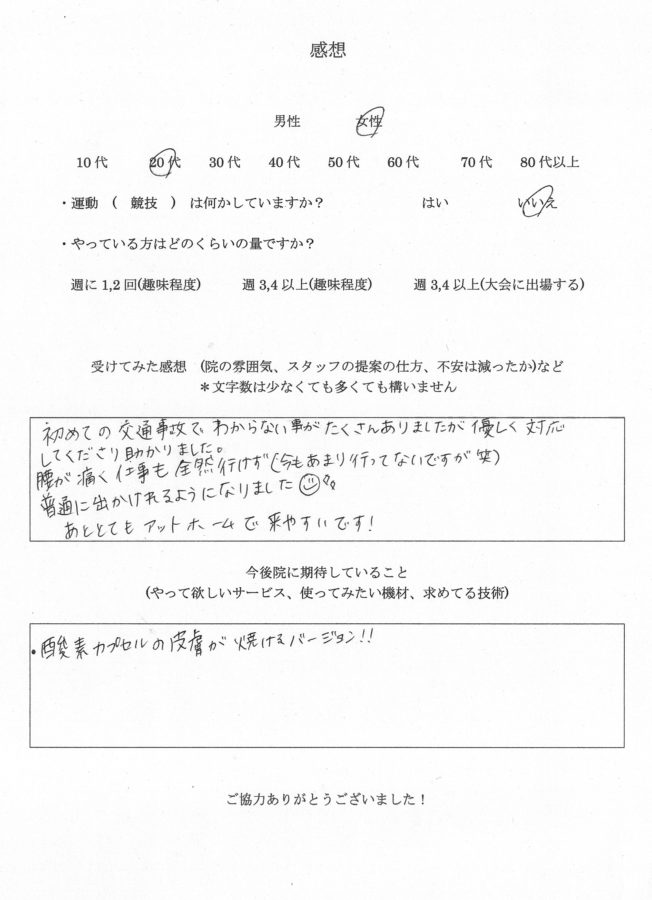 感想
男性 女性
10代 20代 30代 40代 50代 60代 70代 80代以上
・運動 ( 競技 ) は何かしていますか？ はい いいえ
・やっている方はどのくらいの量ですか？
週に1,2回(趣味程度) 週3,4以上(趣味程度) 週3,4以上(大会に出場する)
受けてみた感想 (院の雰囲気、スタッフの提案の仕方、不安は減ったか)など
＊文字数は少なくても多くても構いません
初めての交通事故で わからない事がたくさんありましたが優しく対応
してくださり助かりました。
腰が痛く仕事も全然行けず(今もあまり行ってないですが笑)
普通に出かけれるようになりました
あととてもアットホームで来やすいです!
今後院に期待していること
(やって欲しいサービス、使ってみたい機材、求めてる技術)
・酸素カプセルの皮膚が焼けるバージョン!!
ご協力ありがとうございました！